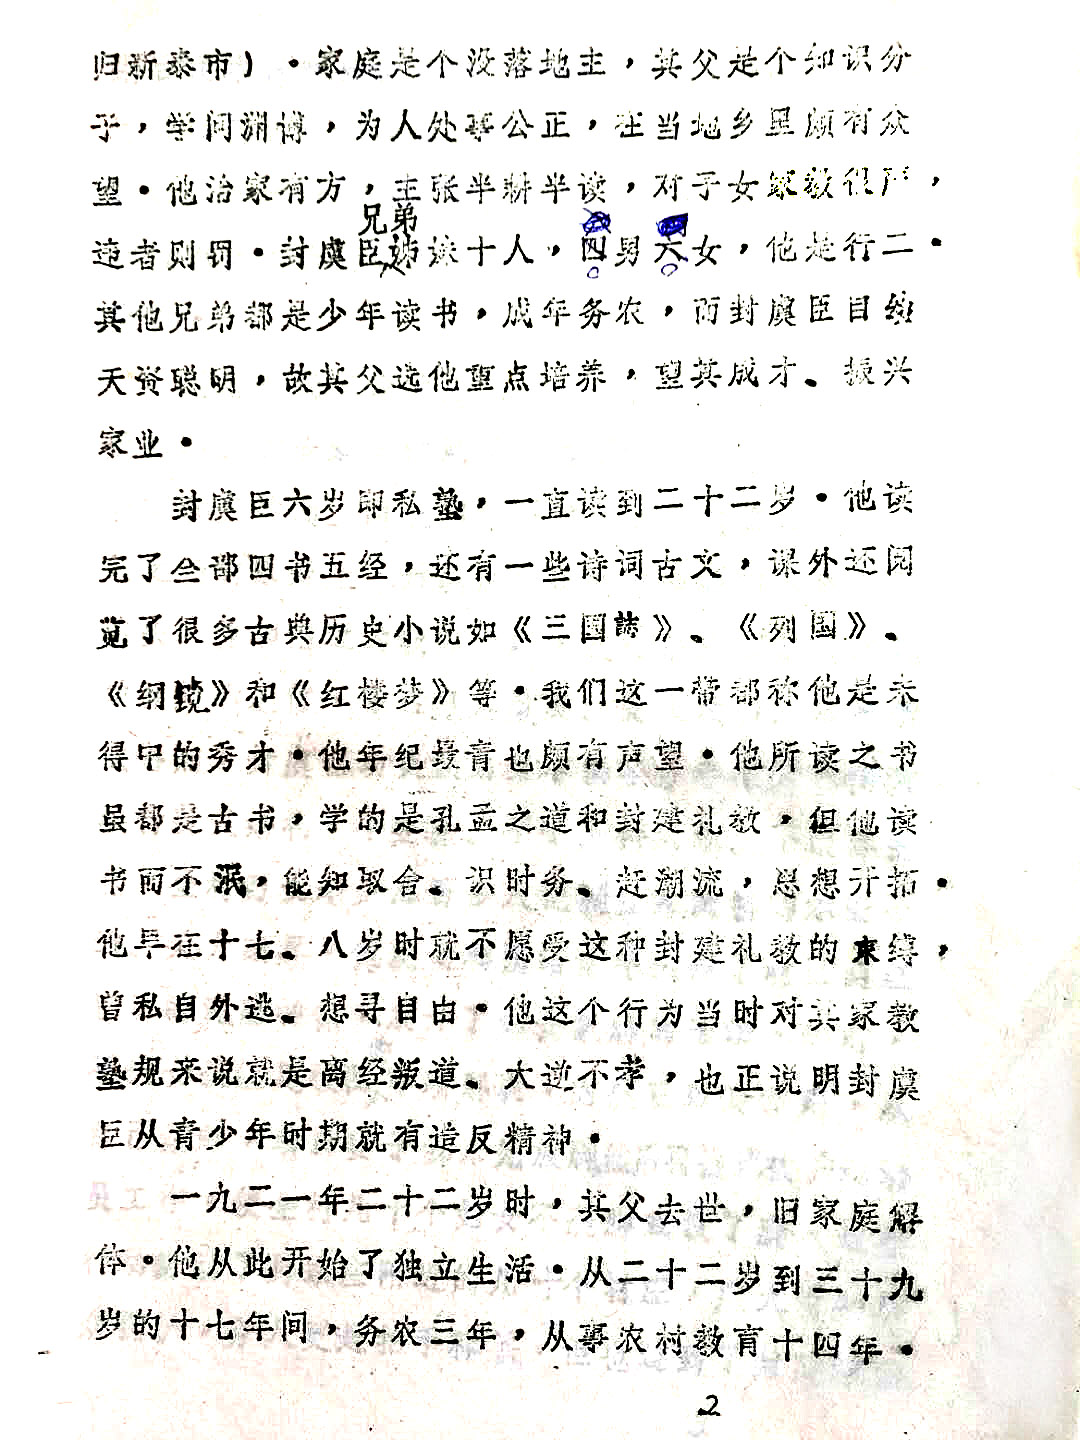 归新泰市）。家庭是个没落地主，其父是个知识分
子，学问渊博，为人处事公正，在当地乡里颇有众
望。他治家有方，主张半耕半读，对子女家教很严，
兄弟
违者则罚。封虞臣姊妹十人，四男六女，他是行二。
其他兄弟都是少年读书，成年务农，而封虞臣自幼
天资聪明，故其父选他重点培养，望其成才、振兴
家业。
封虞臣六岁即私塾，一直读到二十二岁。他读
完了全部四书五经，还有一些诗词古文，课外还阅
览了很多古典历史小说如《三国誌》、《列国》、
《纲镜》和《红楼梦》等。我们这一带都称他是未
得中的秀才。他年纪最青也颇有声望。他所读之书
虽都是古书，学的是孔孟之道和封建礼教，但他读
书而不泯，能知取舍、识时务、赶潮流，思想开拓。
他早在十七、八岁时就不愿受这种封建礼教的束缚，
曾私自外逃、想寻自由。他这个行为当时对其家教
塾规来说就是离经叛道、大逆不孝，也正说明封虞
臣从青少年时期就有造反精神。
一九二一年二十二岁时，其父去世，旧家庭解
体。他从此开始了独立生活。从二十二岁到三十九
岁的十七年间，务农三年，从事农村教育十四年。
2